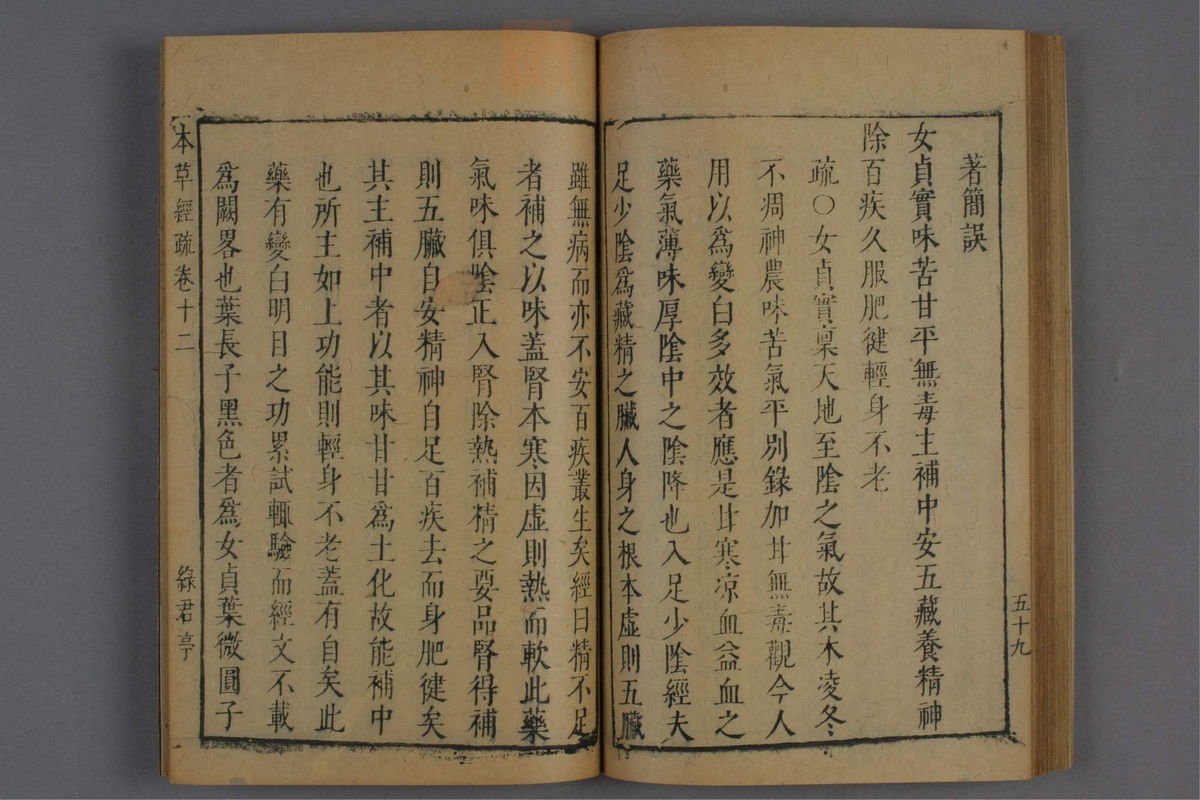 著簡誤
女貞實味苦甘平無毒主補中安五藏養精神
除百疾久服肥健輕身不老
疏○女貞實稟天地至陰之氣故其木凌冬
不凋神農味苦氣平別錄加甘無毒觀今人
用以爲變白多效者應是甘寒凉血益血之
藥氣薄味厚陰中之陰降也入足少陰經夫
足少陰爲藏精之臟人身之根本虛則五臟
五十九
雖無病而亦不安百疾叢生矣經曰精不足
者補之以味蓋腎本寒因虛則熱而軟此藥
氣味俱陰正入腎除熱補精之要品腎得補
則五臟自安精神自足百疾去而身肥健矣
其主補中者以其味甘甘爲土化故能補中
也所主如上功能則輕身不老蓋有自矣此
藥有變白明目之功累試輒驗而經文不載
爲闕畧也葉長子黑色者爲女貞葉微圓子
本草經疏卷十二 綠君亭